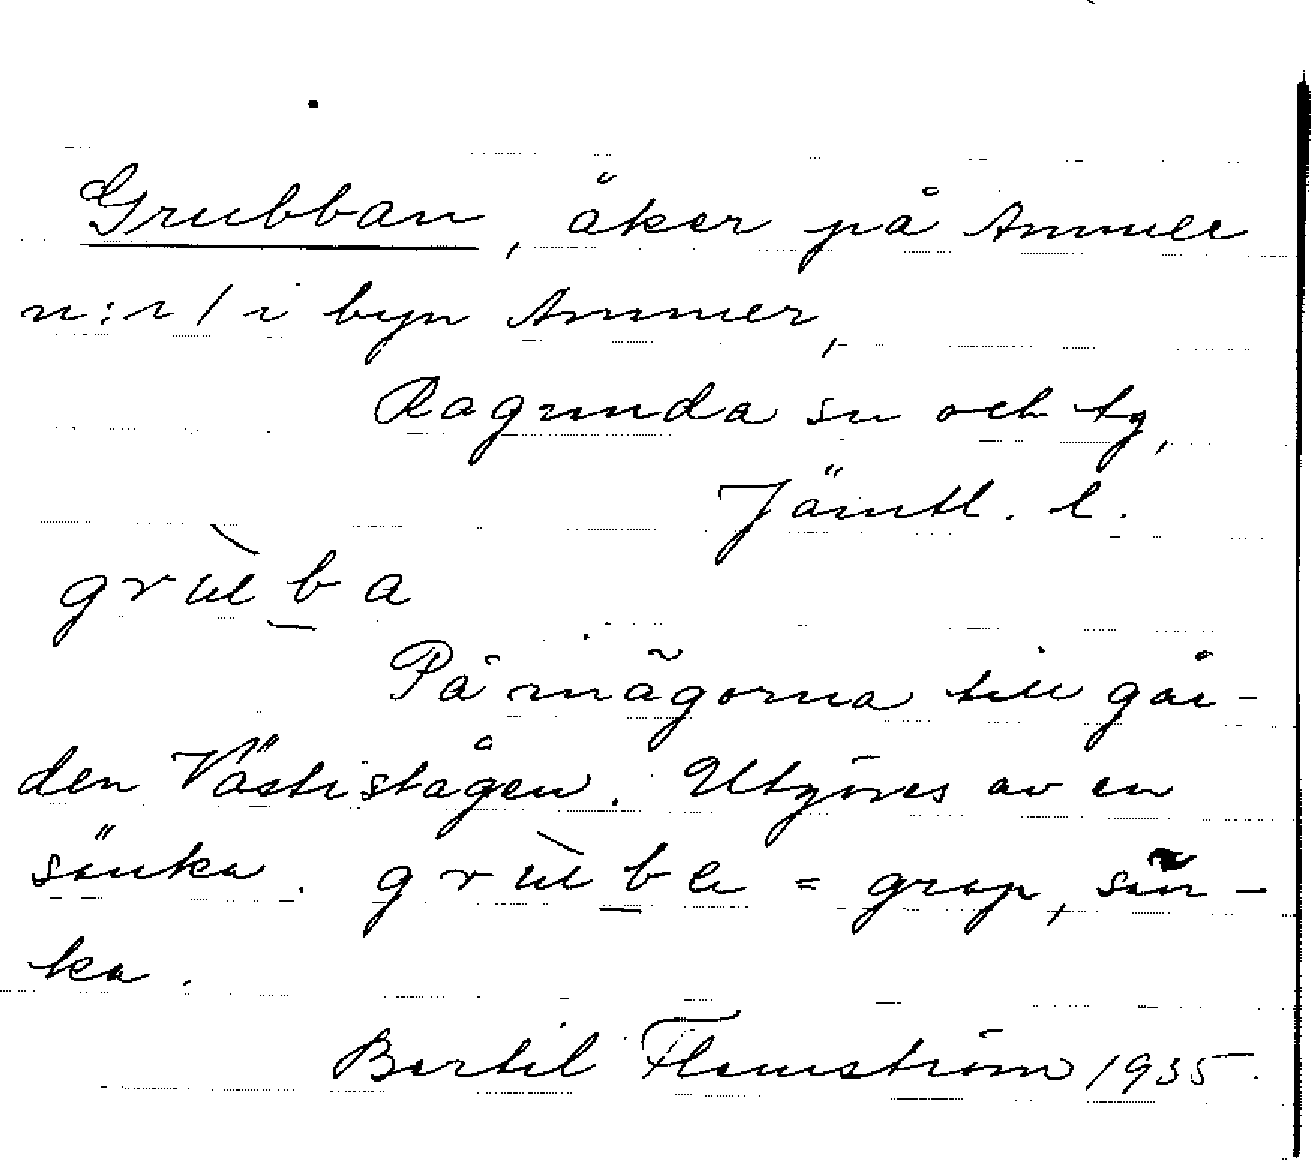 Grubban, åker på Ammer
n:r 1 i byn Ammer,
Ragunda sn och tg,
Jämtl. l.
grùba
På mägorna till går-
den Västistågen. Utgöres av en
sänka. grùbe = grop, sän-
ka.
Bertil Flemström 1935.